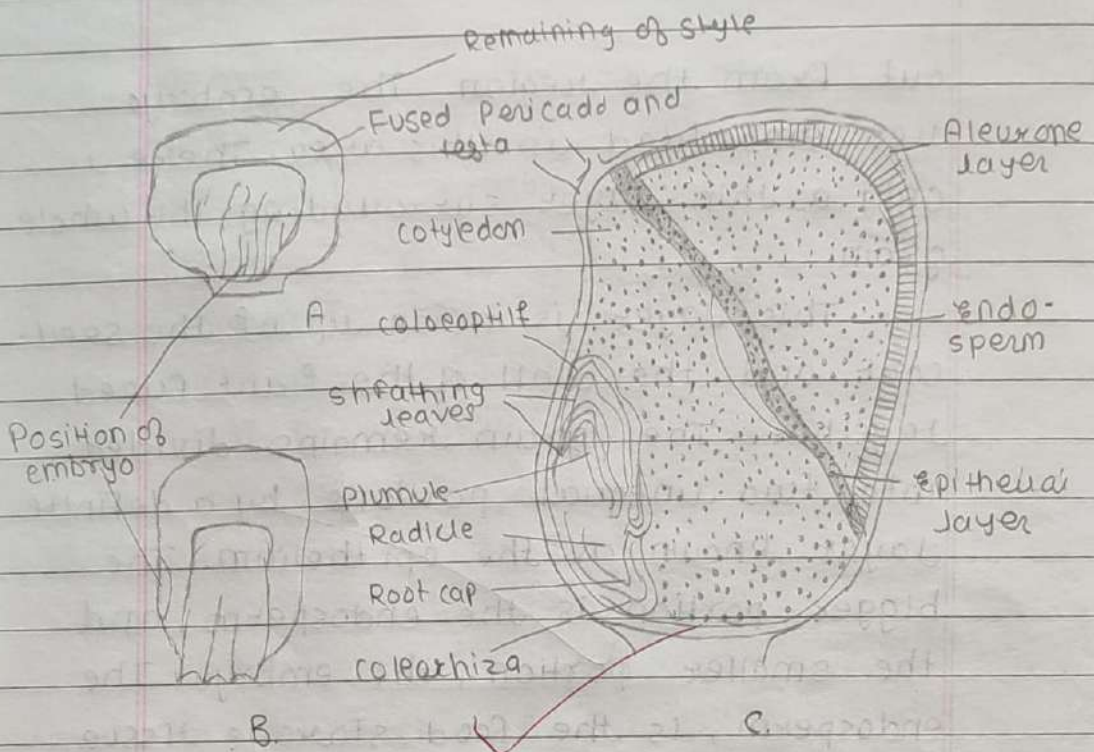 Remaining of style
Fused Pericadd and
testa
Aleurone
layer
cotyledon
A
coloeoptile
Endo-
sperm
shfathing
leaves
Position of
embryo
plumule
Epithelial
layer
Radicle
Root cap
colearhiza
B.
C.